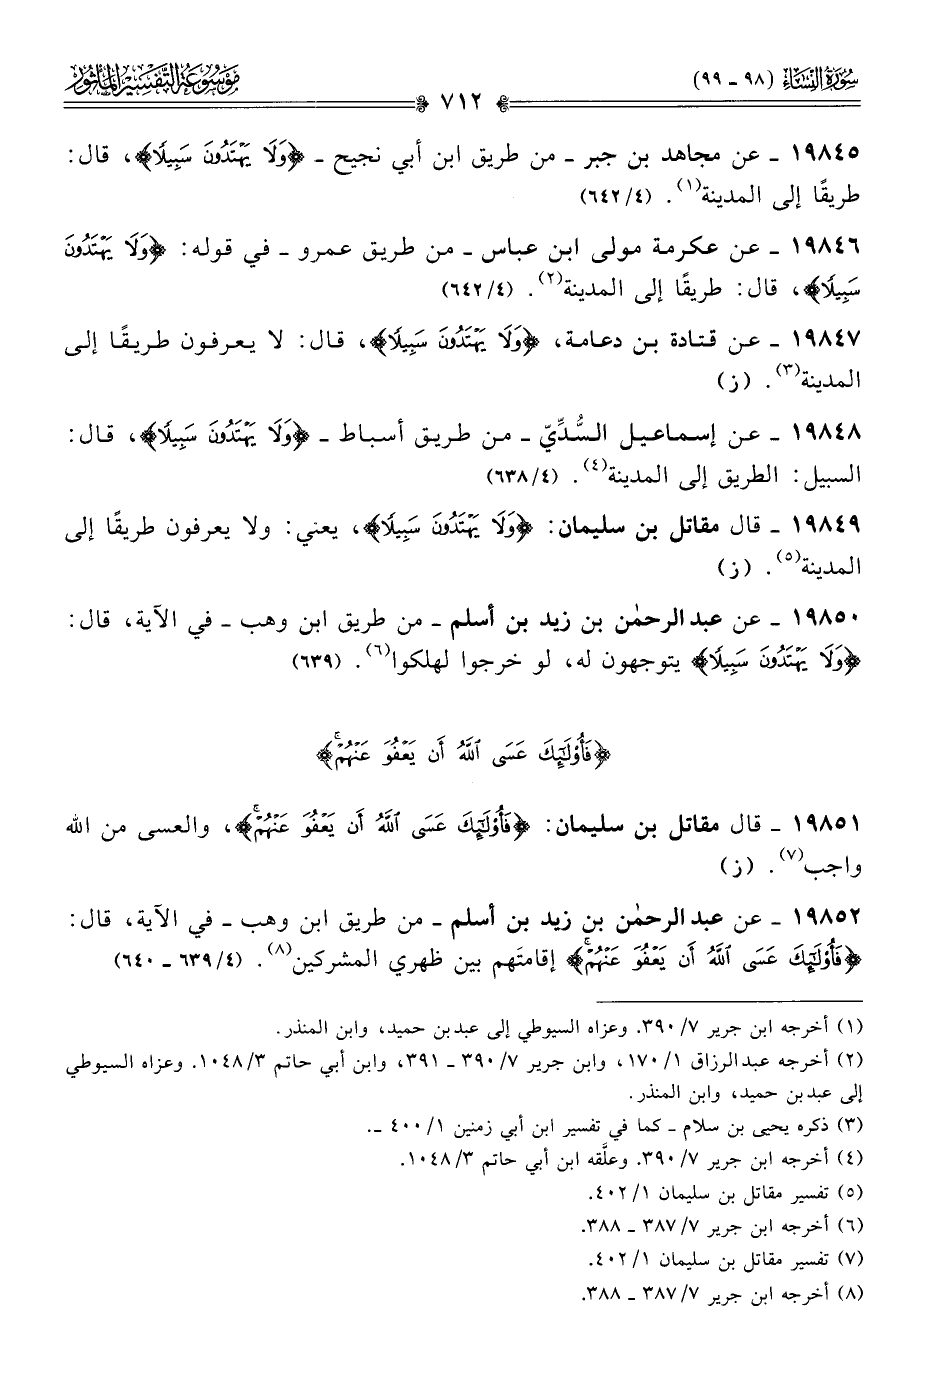 سُورَةُ النِّسَاءِ (٩٨ - ٩٩)
موسوعة التفسير المأثور
٧١٢
١٩٨٤٥ - عن مجاهد بن جبر - من طريق ابن أبي نجيح - ﴿وَلَا يَهْتَدُونَ سَبِيلًا﴾، قال:
طريقًا إلى المدينة(١). (٦٤٢/٤)
١٩٨٤٦ - عن عكرمة مولى ابن عباس - من طريق عمرو - في قوله: ﴿وَلَا يَهْتَدُونَ
سَبِيلًا﴾، قال: طريقًا إلى المدينة(٢). (٦٤٢/٤)
١٩٨٤٧ - عن قتادة بن دعامة، ﴿وَلَا يَهْتَدُونَ سَبِيلًا﴾، قال: لا يعرفون طريقًا إلى
المدينة(٣). (ز)
١٩٨٤٨ - عن إسماعيل السُّدِّيّ - من طريق أسباط - ﴿وَلَا يَهْتَدُونَ سَبِيلًا﴾، قال:
السبيل: الطريق إلى المدينة(٤). (٦٣٨/٤)
١٩٨٤٩ - قال مقاتل بن سليمان: ﴿وَلَا يَهْتَدُونَ سَبِيلًا﴾، يعني: ولا يعرفون طريقًا إلى
المدينة(٥). (ز)
١٩٨٥٠ - عن عبد الرحمٰن بن زيد بن أسلم - من طريق ابن وهب - في الآية، قال:
﴿وَلَا يَهْتَدُونَ سَبِيلًا﴾ يتوجهون له، لو خرجوا لهلكوا(٦). (٦٣٩)
﴿فَأُوْلَٰٓئِكَ عَسَى ٱللَّهُ أَن يَعْفُوَ عَنْهُمْۚ﴾
١٩٨٥١ - قال مقاتل بن سليمان: ﴿فَأُوْلَٰٓئِكَ عَسَى ٱللَّهُ أَن يَعْفُوَ عَنْهُمْۚ﴾، والعسى من الله
واجب(٧). (ز)
١٩٨٥٢ - عن عبد الرحمٰن بن زيد بن أسلم - من طريق ابن وهب - في الآية، قال:
﴿فَأُوْلَٰٓئِكَ عَسَى ٱللَّهُ أَن يَعْفُوَ عَنْهُمْۚ﴾ إقامتَهم بين ظهري المشركين(٨). (٦٣٩/٤ - ٦٤٠)
(١) أخرجه ابن جرير ٧/ ٣٩٠. وعزاه السيوطي إلى عبد بن حميد، وابن المنذر.
(٢) أخرجه عبد الرزاق ١/ ١٧٠، وابن جرير ٧/ ٣٩٠ - ٣٩١، وابن أبي حاتم ٣/ ١٠٤٨. وعزاه السيوطي
إلى عبد بن حميد، وابن المنذر.
(٣) ذكره يحيى بن سلام - كما في تفسير ابن أبي زمنين ١/ ٤٠٠ -.
(٤) أخرجه ابن جرير ٧/ ٣٩٠. وعلَّقه ابن أبي حاتم ٣/ ١٠٤٨.
(٥) تفسير مقاتل بن سليمان ١/ ٤٠٢.
(٦) أخرجه ابن جرير ٧/ ٣٨٧ - ٣٨٨.
(٧) تفسير مقاتل بن سليمان ١/ ٤٠٢.
(٨) أخرجه ابن جرير ٧/ ٣٨٧ - ٣٨٨.